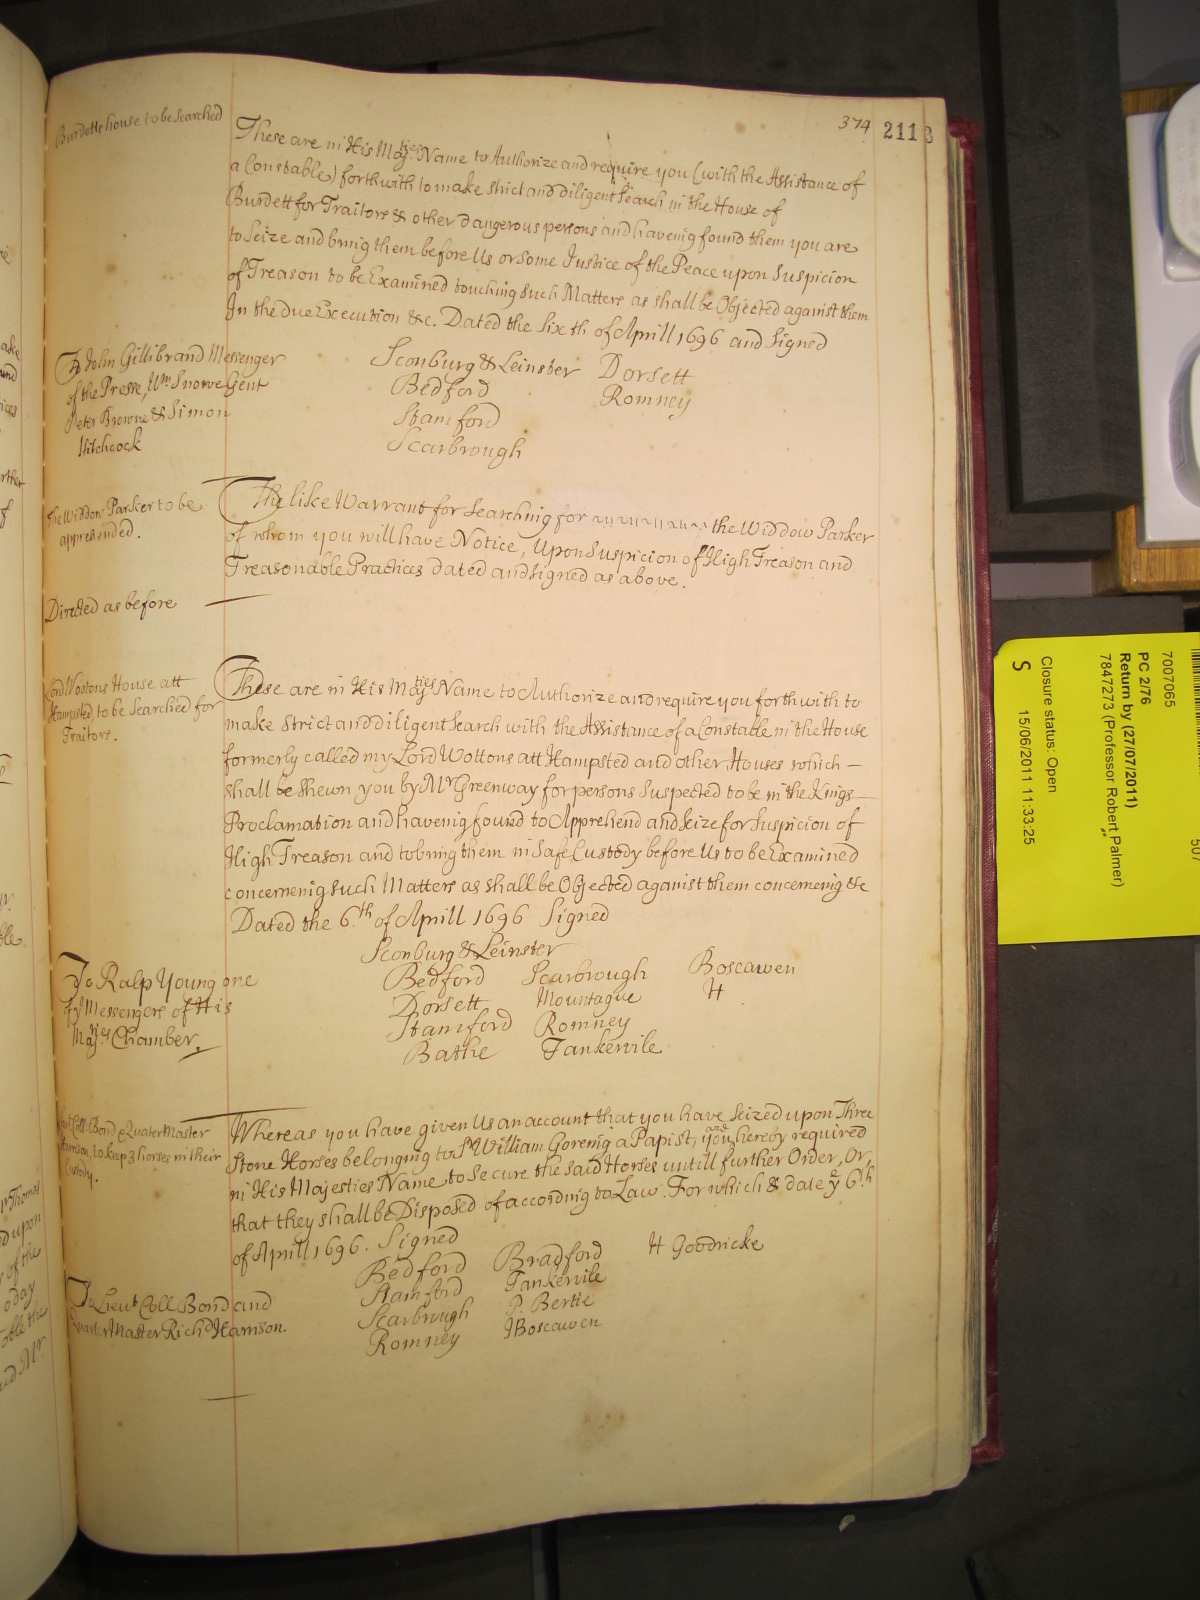 374 211
Burdetts house to be Searched
These are in His Ma^ties Name to Authorize and require you (with the Assistance of
a Constable) forthwith to make strict and diligent Search in the House of
Burdett for Traitors & other dangerous persons and haveing found them you are
to Seize and bring them before Us or some Justice of the Peace upon Suspicion
of Treason to be Examined touching such Matters as shall be Objected against them
In the due Execution &c. Dated the Sixth of Aprill 1696 and Signed
To John Gillibrand Messenger
of the Presse, Wm Snowe Gent
Peter Browne & Simon
Hitchcock
Sconburg & Leinster Dorsett
Bedford Romney
Stamford
Scarbrough
The Widdow Parker to be
apprehended.
The like Warrant for Searching for the Widdow Parker
of whom you will have Notice, Upon Suspicion of High Treason and
Treasonable Practices dated and signed as above.
Directed as before
Lord Wootons House att
Hampsted, to be Searched for
Traitors.
These are in His Maj^ties Name to Authorize and require you forthwith to
make Strict and diligent Search with the Assistance of a Constable in the House
formerly called my Lord Wottons att Hampsted and other Houses which —
shall be Shewn you by Mr Greenway for persons Suspected to be in the Kings —
Proclamation and haveing found to Apprehend and seize for Suspicion of
High Treason and to bring them in Safe Custody before Us to be Examined
concerneing such Matters as shall be Objected against them concerneing &c
Dated the 6.th of Aprill 1696 Signed
To Ralp Young one
of ye Messengers of His
Maj.ties Chamber.
Sconburg & Leinster
Bedford Scarbrough Boscawen
Dorsett Mountague H
Stamford Romney
Bathe Tankervile
Lieut Coll Bond & Quater Master
Harrison, to keep 3 horses in their
Custody.
Whereas you have given Us an account that you have Seized upon Three
Stone Horses belonging to Sr William Goreing a Papist, you and hereby required
in His Majesties Name to Secure the said Horses untill further Order, Or,
that they shall be Disposed of according to Law. For which &c date ye 6.th
of Aprill 1696. Signed
To Lieut Coll Bond and
Quarter Master Richd Harrison.
Bedford Bradford H Goodricke
Stamford Tankervile
Scarbrugh P. Bertie
Romney JBoscawen
7007065
PC 2/76
Return by (27/07/2011)
7847273 (Professor Robert Palmer)
Closure status: Open
S 15/06/2011 11:33:25